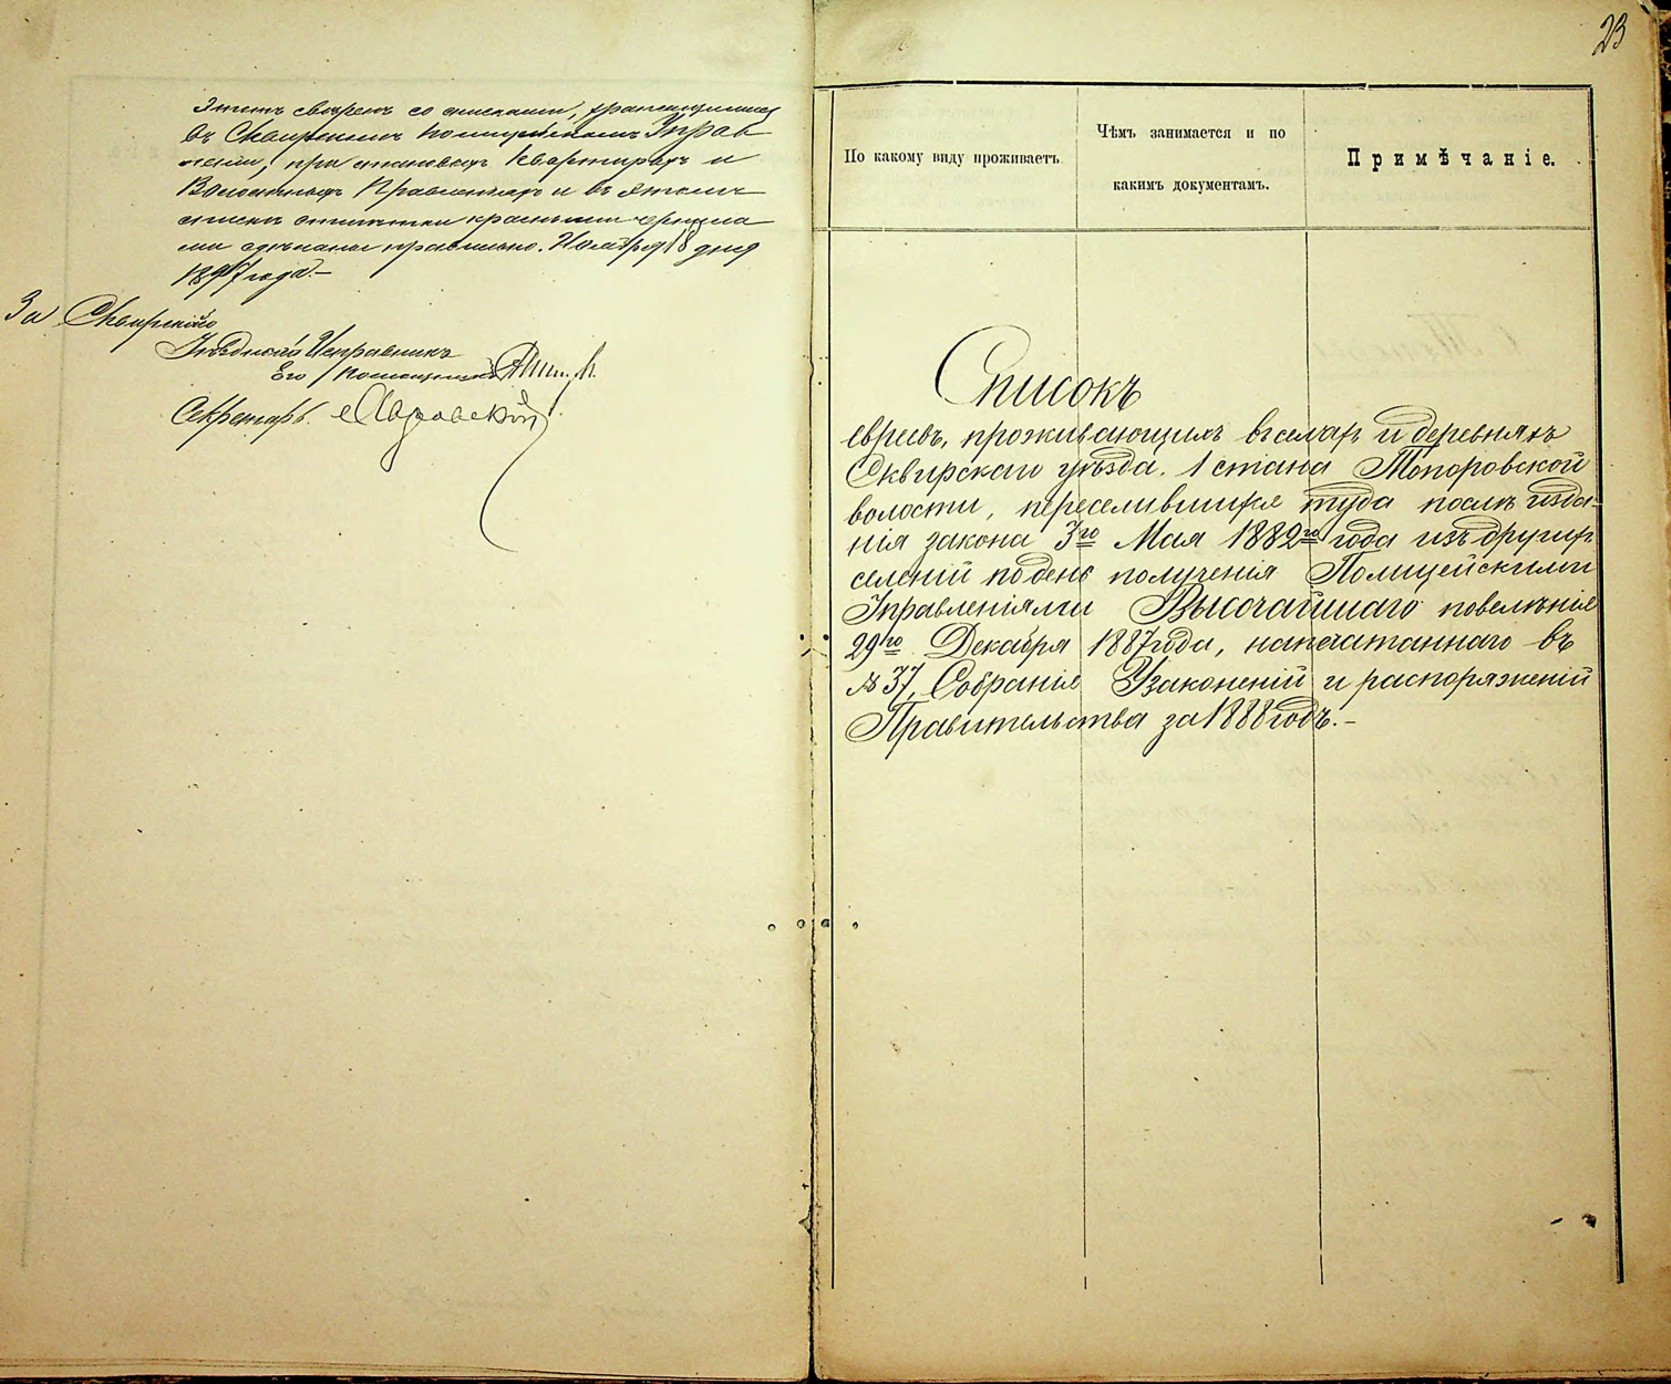 Этотъ свѣренъ со списками, хранящимися
въ Сквирскомъ Полицейскомъ Управ
леніи, при становыхъ квартирахъ и
Волостныхъ Правленіяхъ и въ этомъ
списки отмѣтки красными чернила
ми сдѣланы правильно. Ноября 18 дня
1897 года.—
За Сквирскаго
Уѣзднаго Исправника
Его Помощникъ
Секретарь
23
По какому виду проживаетъ
Чѣмъ занимается и по
какимъ документамъ.
Примѣчаніе.
Списокъ
евреевъ, проживающихъ въ селахъ и деревняхъ
Сквирскаго уѣзда. 1 стана Топоровской
волости, переселившихся туда послѣ изда-
нія закона 3го Мая 1882го года изъ другихъ
селеній по день полученія Полицейскими
Управленіями Высочайшаго повелѣнія
29го Декабря 1887 года, напечатаннаго въ
№ 37, Собранія Узаконеній и распоряженій
Правительства за 1888 годъ.—